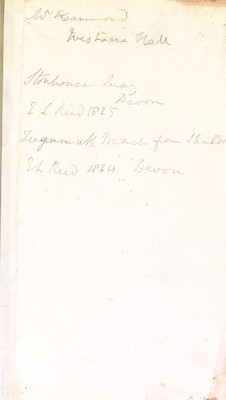 Mr Hammond
Westacre Hall
Stonhouse Quay
Devon
E L Reid 1825
Teignmouth Beach from Shaldon
E L Reid 1824 " Devon